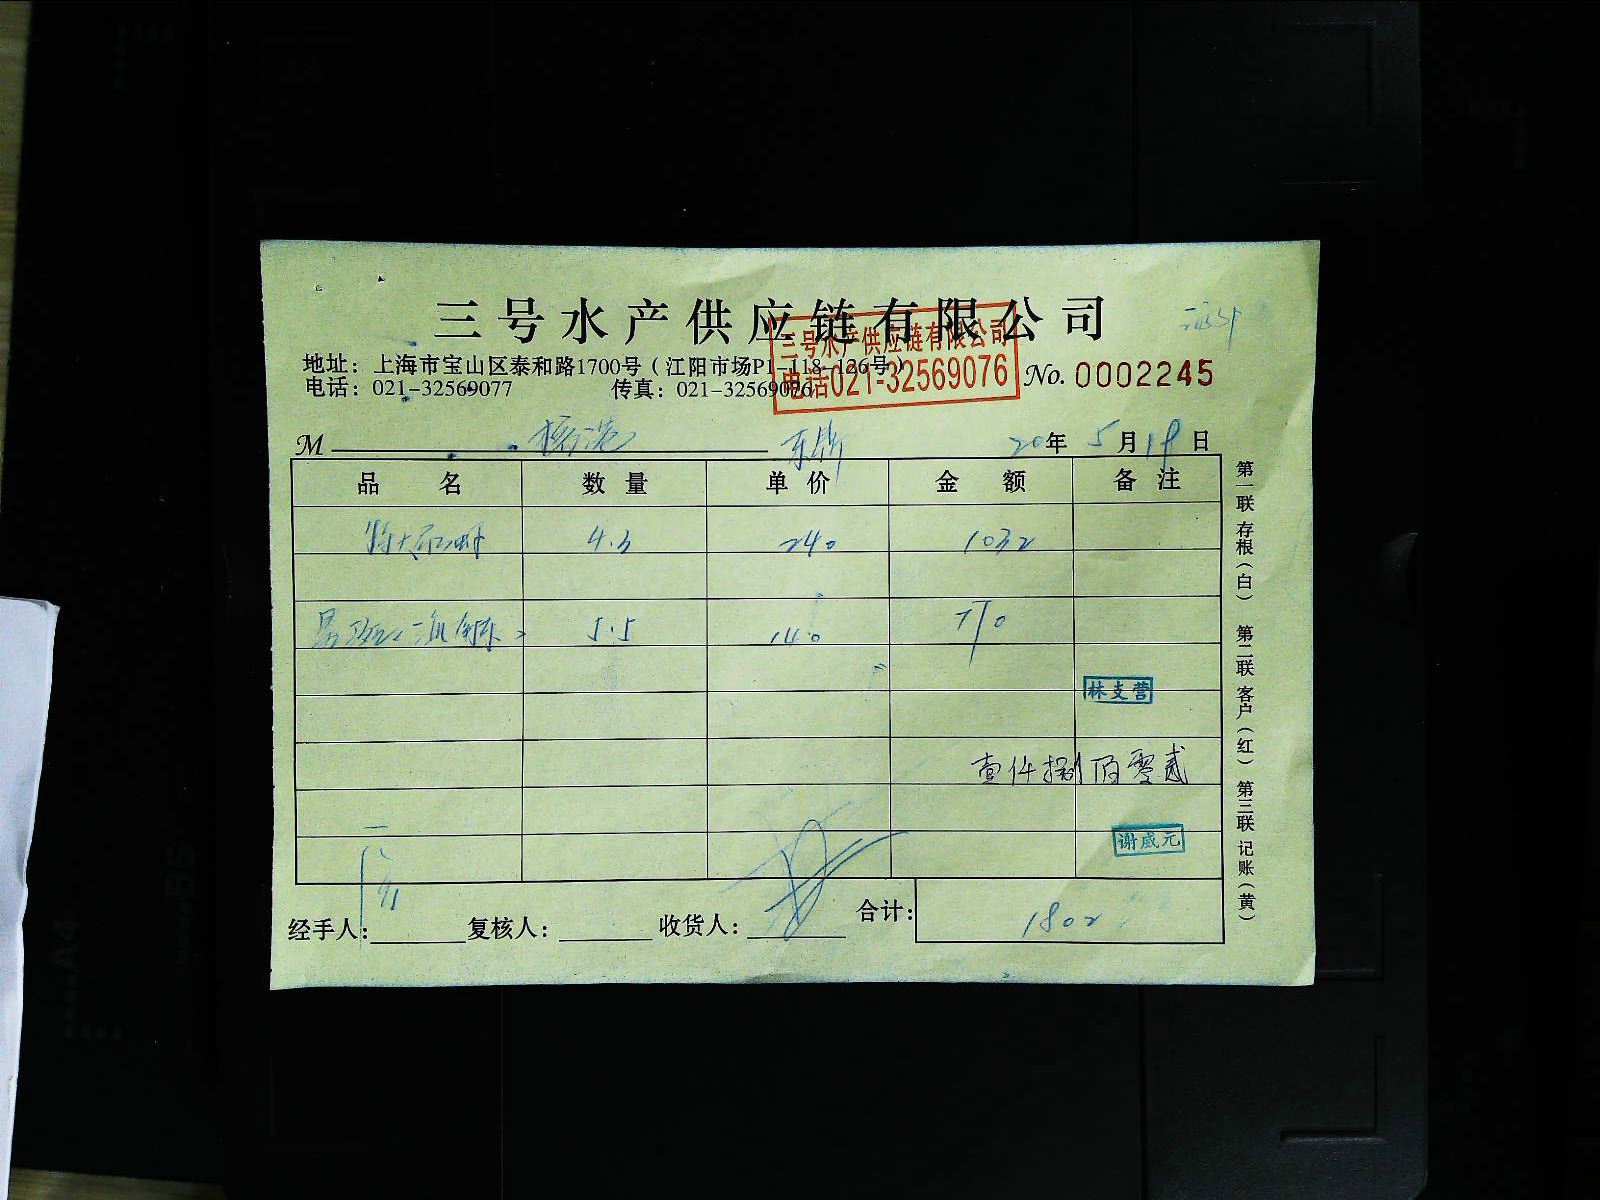 三号水产供应链有限公司
三号水产供应链有限公司
电话021-32569076
地址：上海市宝山区泰和路1700号（江阳市场P1-118-126号）
电话：021-32569077 传真：021-32569076
No. 0002245
M 20年5月19日
品名 数量 单价 金额 备注
4.3 240 1032
5.5 140 770
林支营
壹仟捌佰零贰
谢威元
经手人： 复核人： 收货人： 合计： 1802
第一联 存根（白） 第二联 客户（红） 第三联 记账（黄）